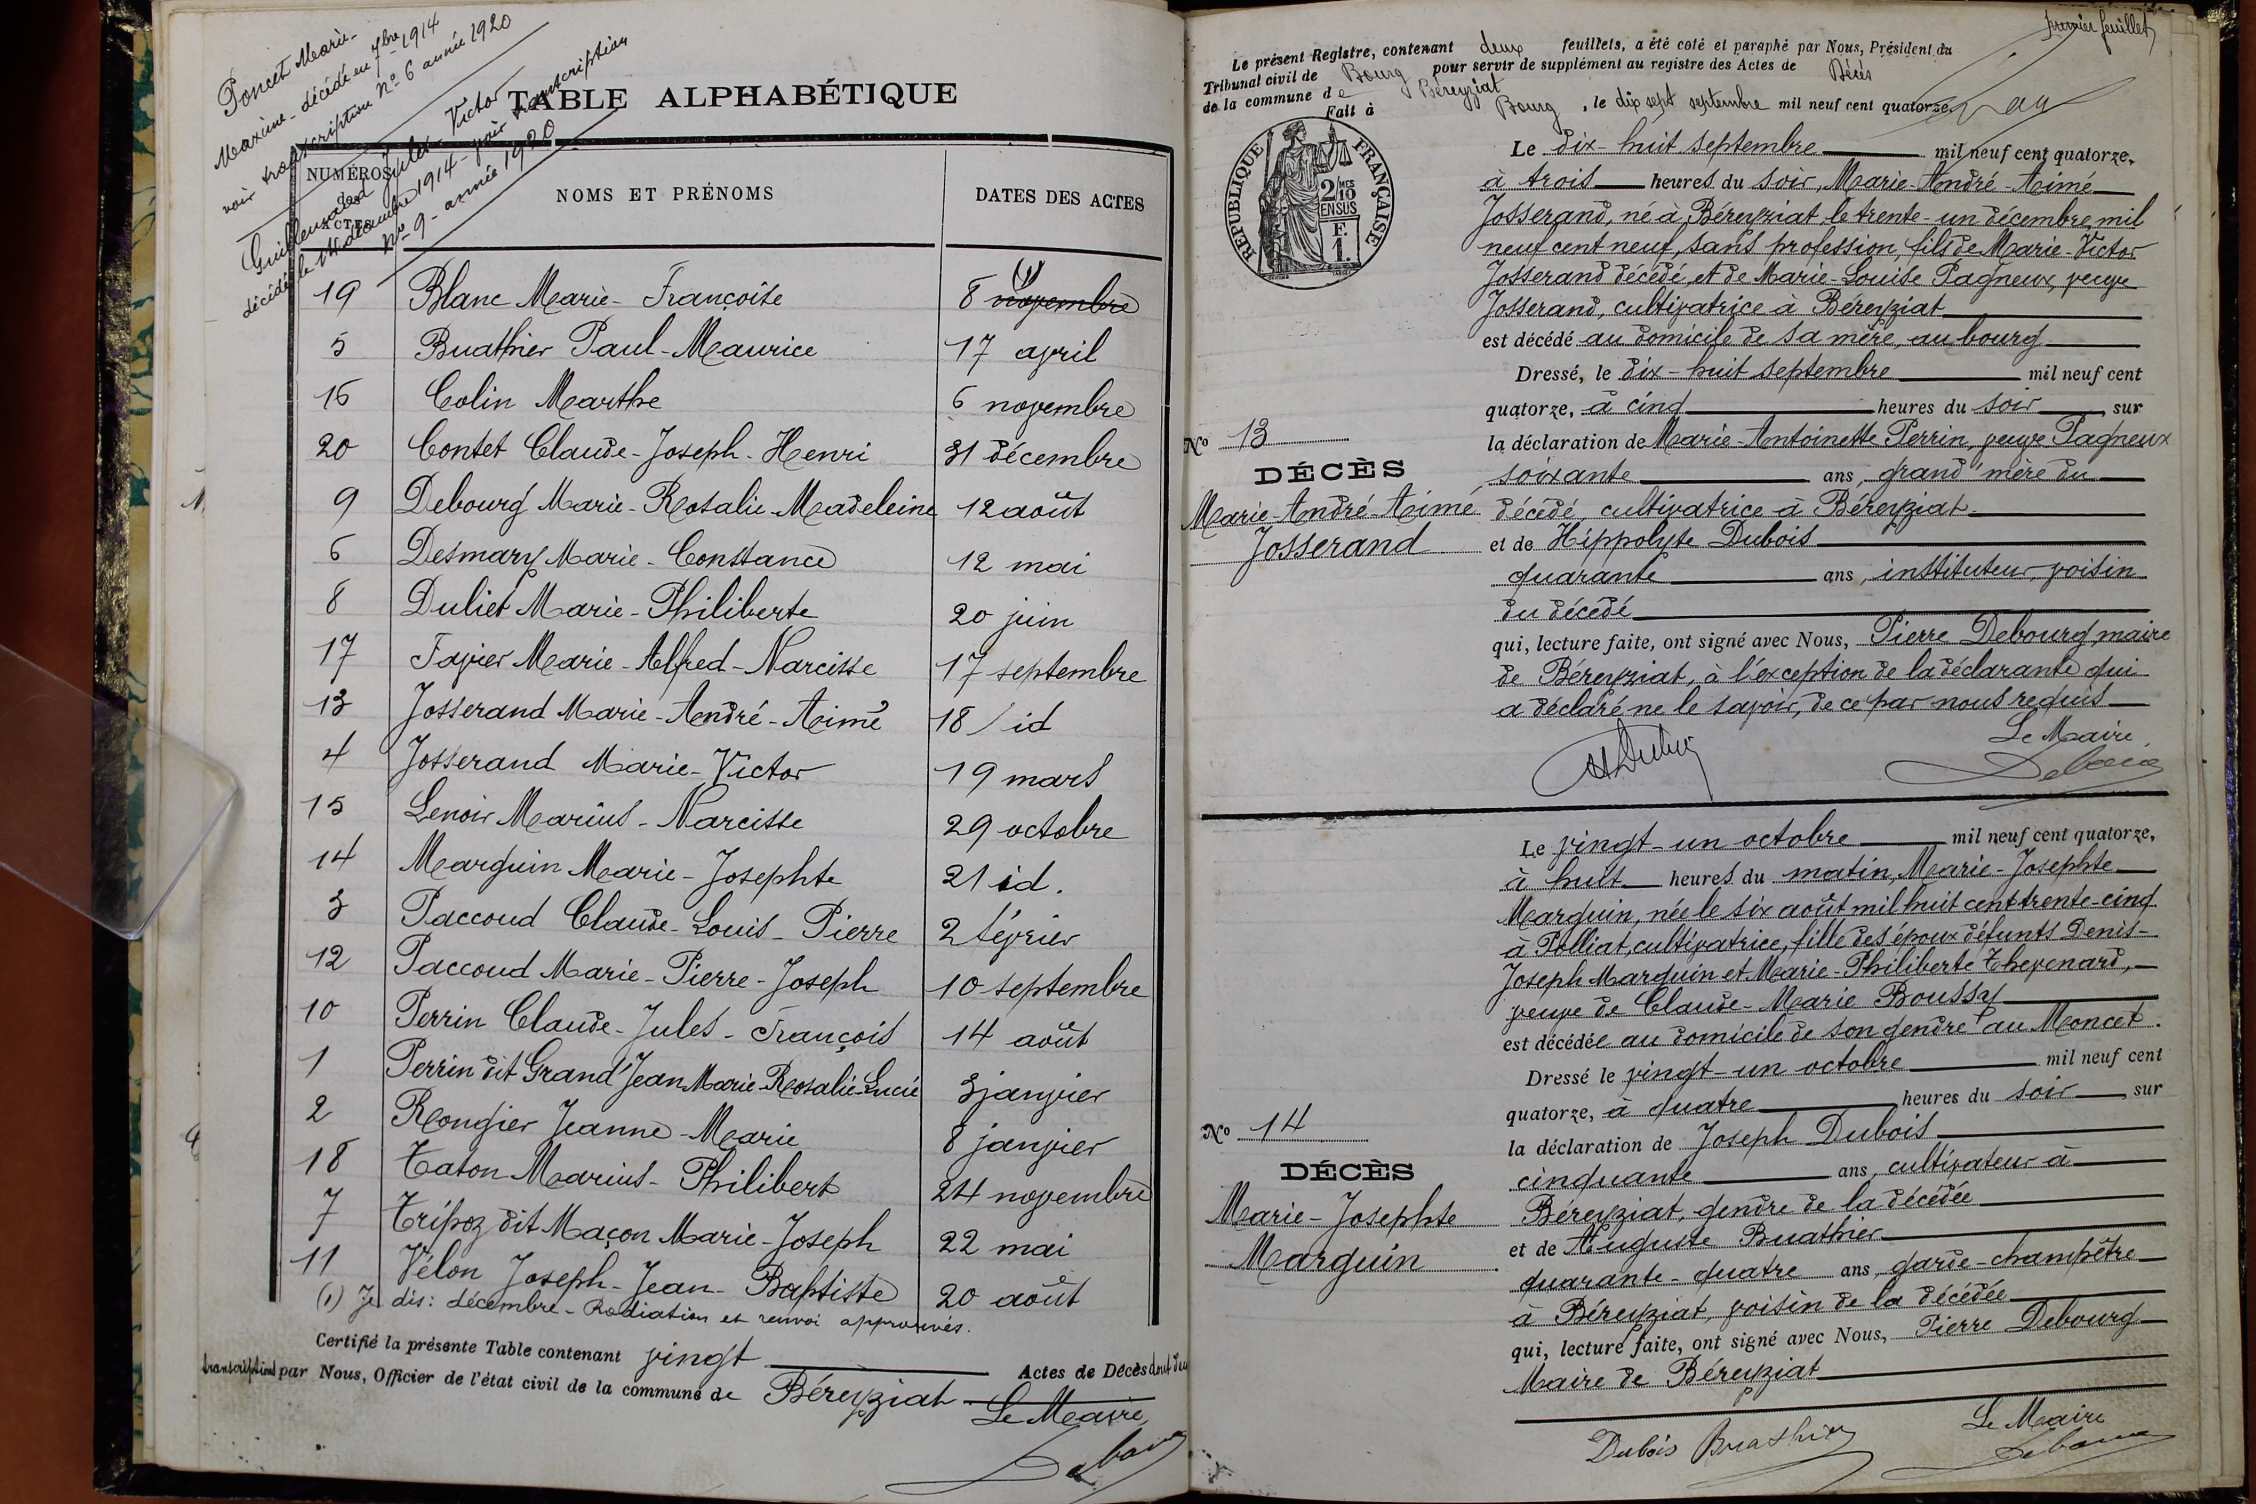 Poncet Marie-
Maxime - décédé en 7bre 1914
voir transcription n° 6 année 1920
Jules - Victor
décédé le 14 décembre 1914 - voir transcription
N° 9 - année 1920
TABLE ALPHABÉTIQUE
NUMÉROS
des
ACTES
NOMS ET PRÉNOMS
DATES DES ACTES
19 Blanc Marie - Françoise 8 novembre (1)
5 Buathier Paul - Maurice 17 avril
16 Colin Marthe 6 novembre
20 Contet Claude - Joseph - Henri 31 décembre
9 Debourg Marie - Rosalie - Madeleine 12 août
6 Desmary Marie - Constance 12 mai
8 Duliet Marie - Philiberte 20 juin
17 Favier Marie - Alfred - Narcisse 17 septembre
13 Josserand Marie - André - Aimé 18 / id
4 Josserand Marie - Victor 19 mars
15 Lenoir Marius - Narcisse 29 octobre
14 Marguin Marie - Josephte 21 id.
3 Paccoud Claude - Louis - Pierre 2 février
12 Paccoud Marie - Pierre - Joseph 10 septembre
10 Perrin Claude - Jules - François 14 août
1 Perrin dit Grand'Jean Marie - Rosalie - Lucie 3 janvier
2 Rongier Jeanne - Marie 8 janvier
18 Taton Marius - Philibert 24 novembre
7 Tripoz dit Maçon Marie - Joseph 22 mai
11 Vélon Joseph - Jean - Baptiste 20 août
(1) Je dis : décembre - Radiation et renvoi approuvés.
Certifié la présente Table contenant vingt Actes de Décès dont deux
transcriptions par Nous, Officier de l'état civil de la commune de Béreyziat
Le Maire,
Debourg
premier feuillet
Le présent Registre, contenant deux feuillets, a été coté et paraphé par Nous, Président du
Tribunal civil de Bourg pour servir de supplément au registre des Actes de Décès
de la commune de Béreyziat
Fait à Bourg, le dix sept septembre mil neuf cent quatorze.
RÉPUBLIQUE FRANÇAISE
2/10
EN SUS
F.
1.
Le dix - huit septembre mil neuf cent quatorze,
à trois heures du soir, Marie - André - Aimé
Josserand, né à Béreyziat le trente - un décembre mil
neuf cent neuf, sans profession, fils de Marie - Victor
Josserand décédé, et de Marie - Louise Pagneux, veuve
Josserand, cultivatrice à Béreyziat
est décédé au domicile de sa mère, au bourg
Dressé, le dix - huit septembre mil neuf cent
quatorze, à cinq heures du soir sur
N° 13
la déclaration de Marie - Antoinette Perrin, veuve Pagneux
DÉCÈS
soixante ans, grand'mère du
Marie - André - Aimé
décédé, cultivatrice à Béreyziat
Josserand
et de Hippolyte Dubois
quarante ans, instituteur, voisin
du décédé
qui, lecture faite, ont signé avec Nous, Pierre Debourg, maire
de Béreyziat, à l'exception de la déclarante qui
a déclaré ne le savoir, de ce par nous requis
Le Maire,
HDubois
Debourg
Le vingt - un octobre mil neuf cent quatorze,
à huit heures du matin, Marie - Josephte
Marguin, née le six août mil huit cent trente - cinq
à Polliat, cultivatrice, fille des époux défunts Denis -
Joseph Marguin et Marie - Philiberte Thevenard,
veuve de Claude - Marie Boussy
est décédée au domicile de son gendre au Moncet.
Dressé le vingt - un octobre mil neuf cent
quatorze, à quatre heures du soir sur
N° 14
la déclaration de Joseph Dubois
DÉCÈS
cinquante ans, cultivateur à
Marie - Josephte
Béreyziat, gendre de la décédée
Marguin
et de Auguste Buathier
quarante - quatre ans, garde - champêtre
à Béreyziat, voisin de la décédée
qui, lecture faite, ont signé avec Nous, Pierre Debourg
Maire de Béreyziat
Le Maire
Dubois Buathier Debourg